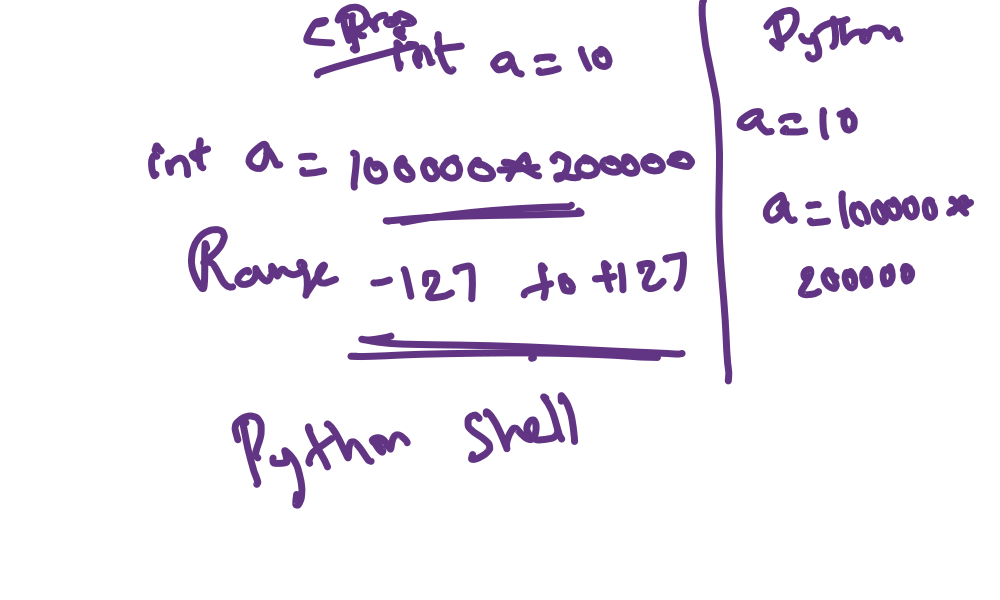 C Prog
int a = 10
int a = 100000*200000
Range -127 to +127
Python Shell
Python
a = 10
a = 100000*
200000